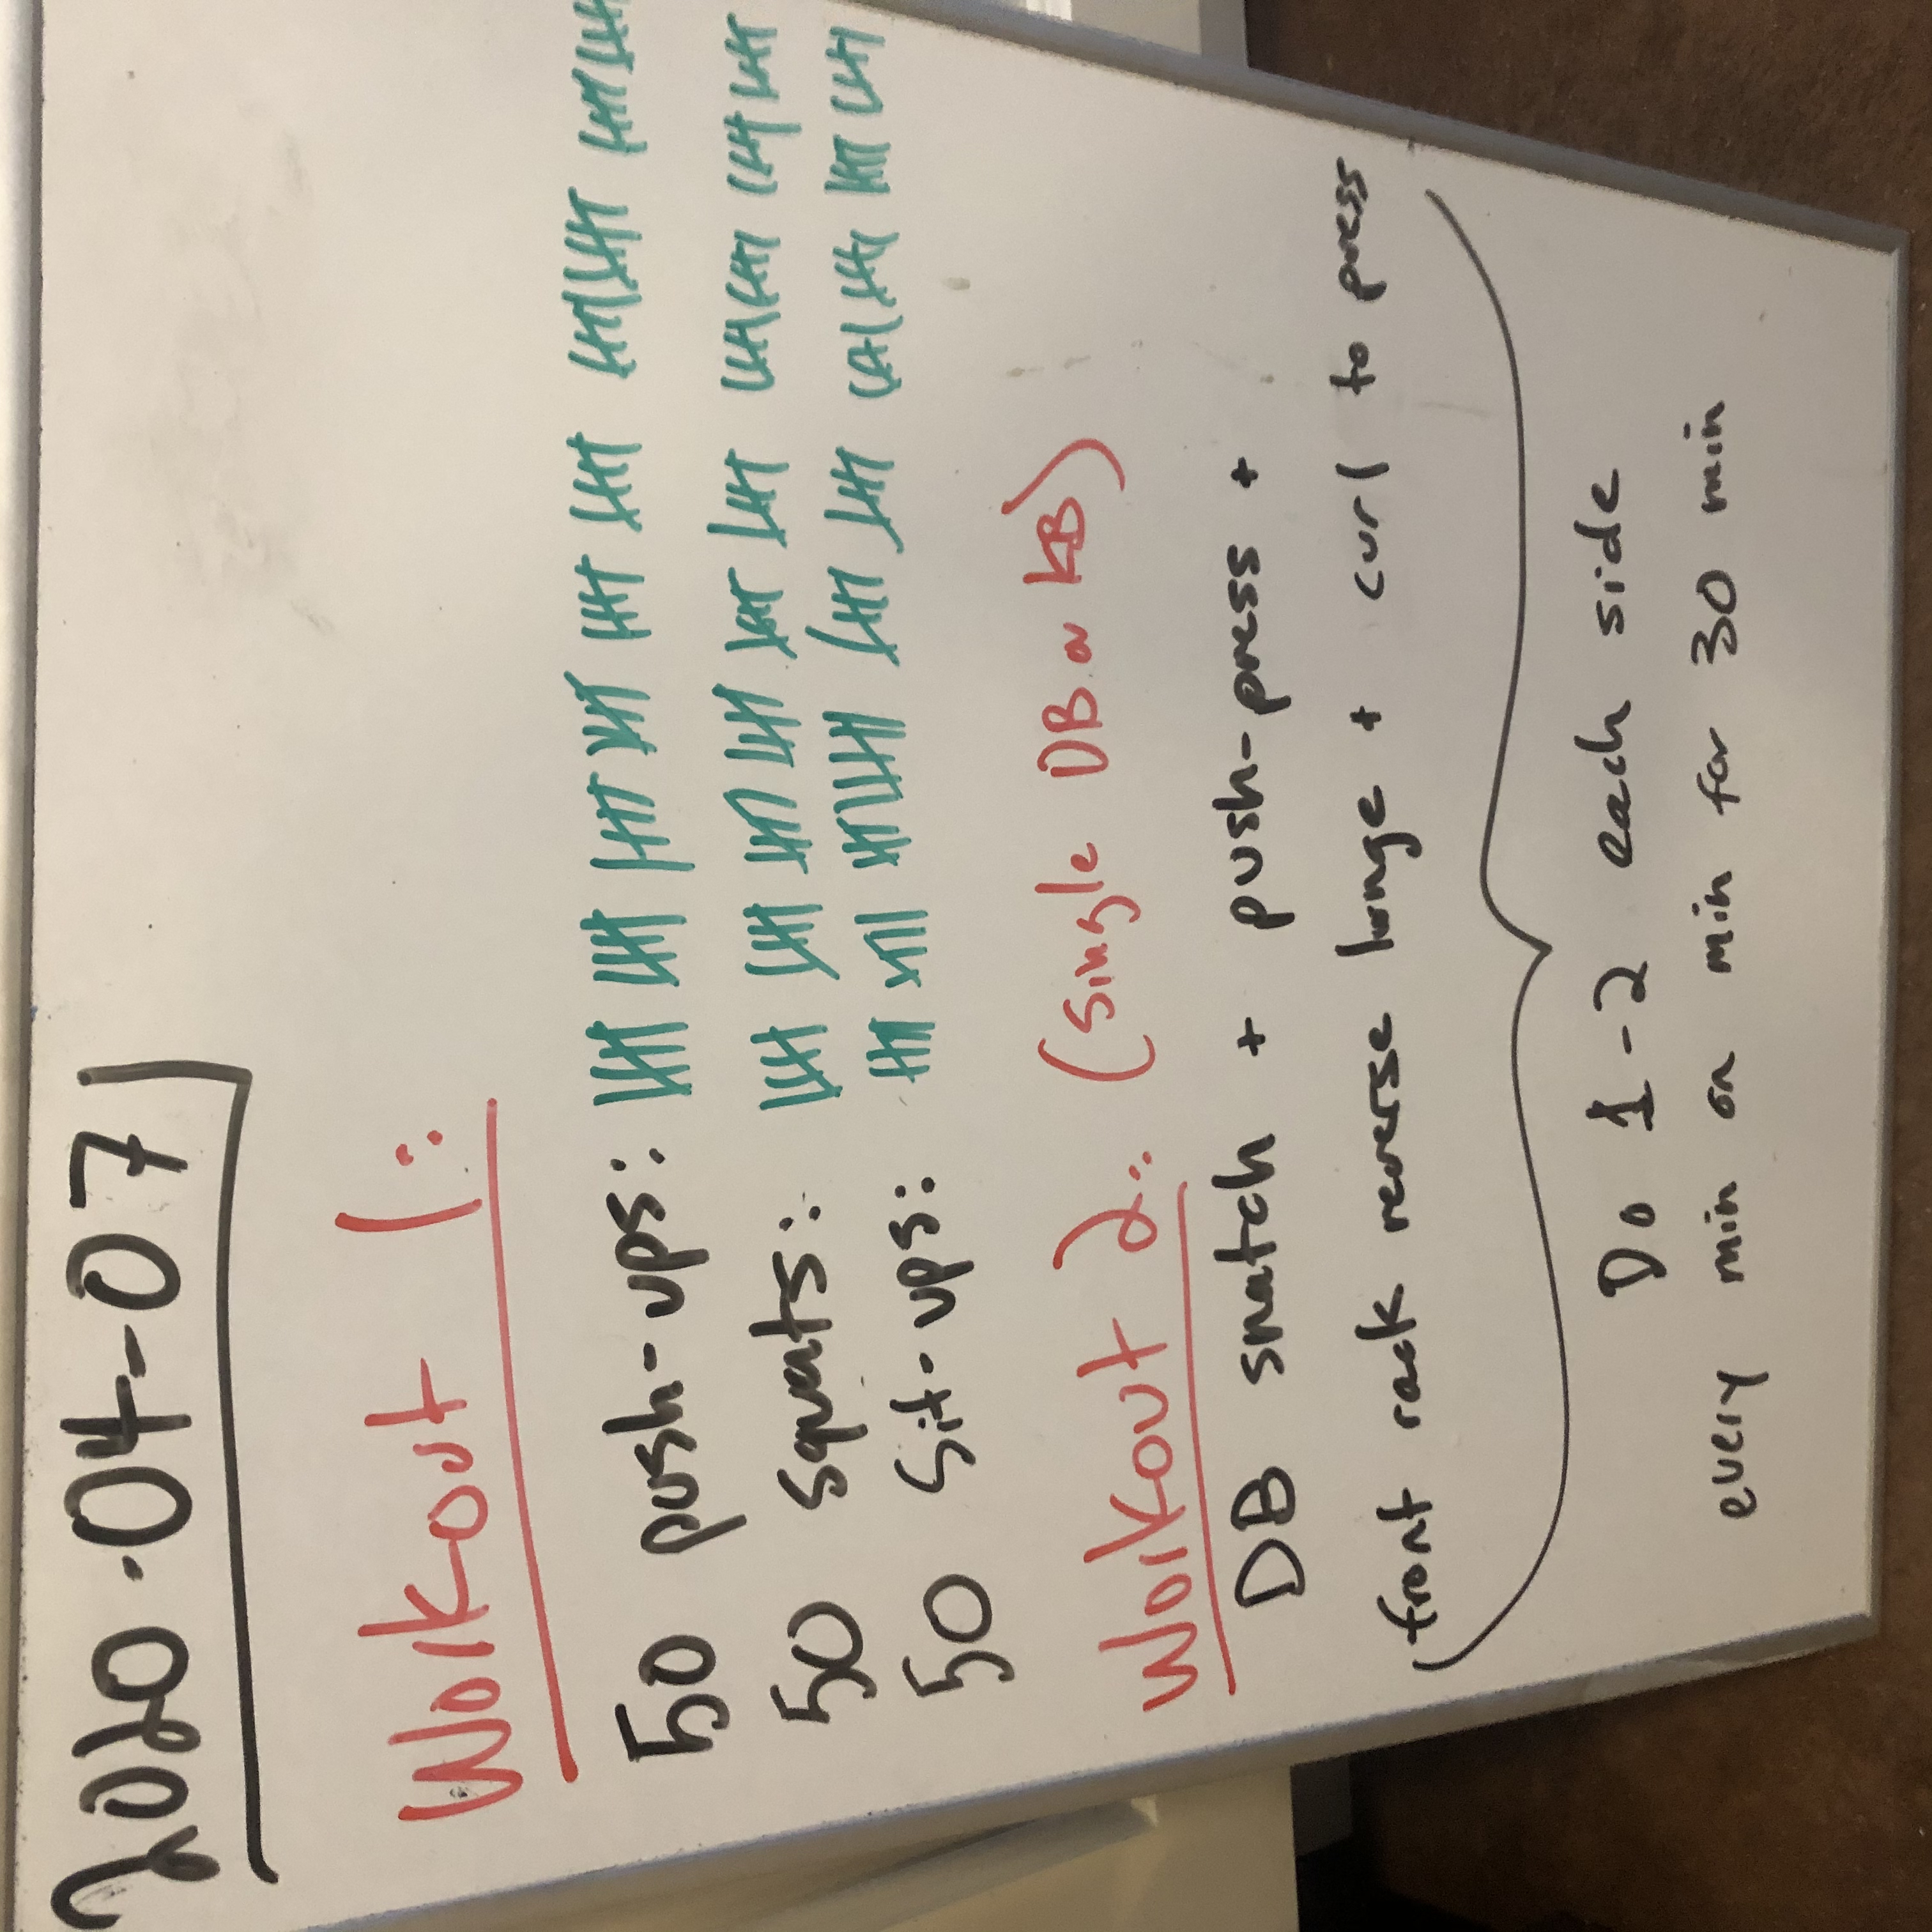 2020-04-07
Workout 1:
50 push-ups: 卌 卌 卌 卌 卌 卌 卌 卌 卌 卌
50 squats: 卌 卌 卌 卌 卌 卌 卌 卌 卌 卌
50 Sit-ups: 卌 卌 卌 卌 卌 卌 卌 卌 卌 卌
Workout 2: (Single DB or KB)
DB snatch + push-press +
front rack reverse lunge + curl to press
Do 1-2 each side
every min on min for 30 min